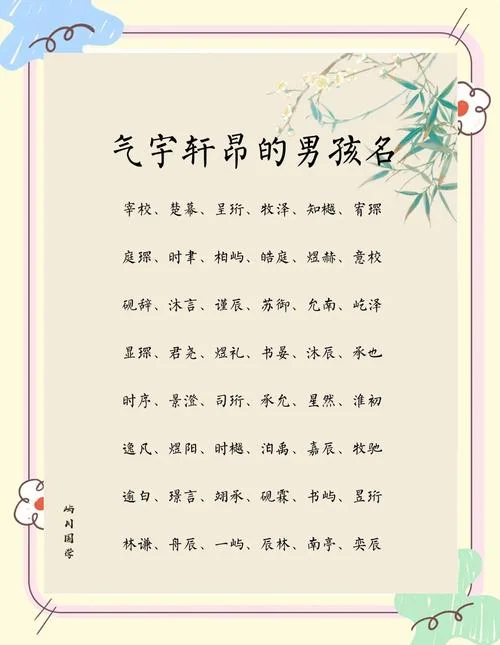 气宇轩昂的男孩名
宰校、楚幕、呈珩、牧泽、知樾、宥琛
庭琛、时聿、柏屿、皓庭、煜赫、意校
砚辞、沐言、谨辰、苏御、允南、屹泽
显琛、君尧、煜礼、书晏、沐辰、承也
时序、景澄、司珩、承允、星然、淮初
逸凡、煜阳、时樾、洎禹、嘉辰、牧驰
逾白、璟言、翊承、砚霖、书屿、昱珩
林谦、舟辰、一屿、辰林、南亭、奕辰
屿川国学